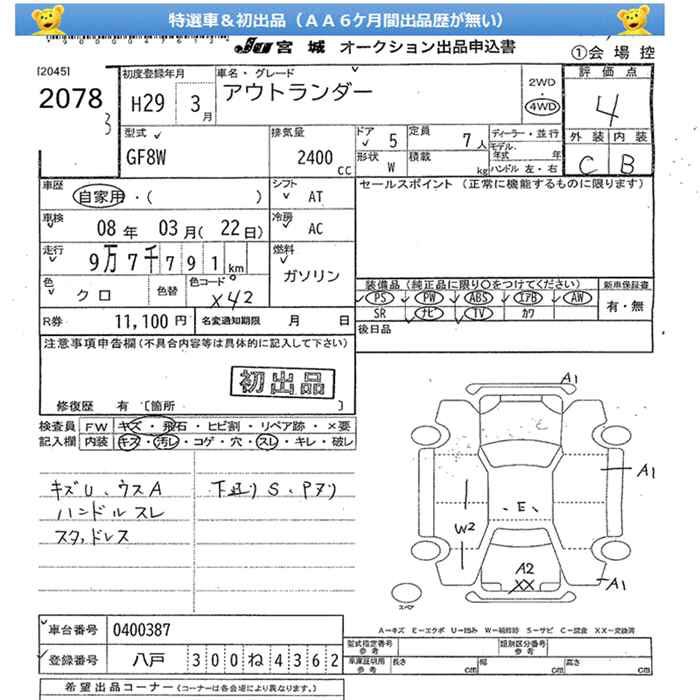 特選車＆初出品（ＡＡ６ケ月間出品歴が無い）
JU 宮城 オークション出品申込書
①会場控
[2045]
2078
初度登録年月
H29 3月
車名・グレード
アウトランダー
2WD
・
4WD
評価点
4
外装 内装
C B
型式
GF8W
排気量
2400 CC
ドア 5
形状 W
定員 7人
積載 kg
ディーラー・並行
モデル年式 年
ハンドル 左・右
車歴
自家用・( )
シフト
AT
セールスポイント (正常に機能するものに限ります)
車検
08年 03月(22日)
冷房
AC
走行
9万7千791km
燃料
ガソリン
色
クロ
色替
色コード
X42
装備品 (純正品に限り○をつけてください)
新車保証書
PS PW ABS エアB AW
有・無
SR ナビ TV カワ
R券 11,100円
名変通知期限 月 日
後日品
注意事項申告欄(不具合内容等は具体的に記入して下さい)
初出品
修復歴 有 [箇所 ]
検査員記入欄
FW キズ・飛石・ヒビ割・リペア跡・×要
内装 キズ・汚レ・コゲ・穴・スレ・キレ・破レ
キズU、ウスA
ハンドルスレ
スタッドレス
下廻り S、
A1
A1
E
W2
A2
XX
A1
スペア
A－キズ E－エクボ U－凹み W－補修跡 S－サビ C－腐食 XX－交換済
車台番号 0400387
登録番号 八戸 300ね4362
型式指定番号
参考
類別区分番号
参考
車庫証明用
参考
長さ cm 幅 cm 高さ cm
希望出品コーナー(コーナーは各会場により異なります。)